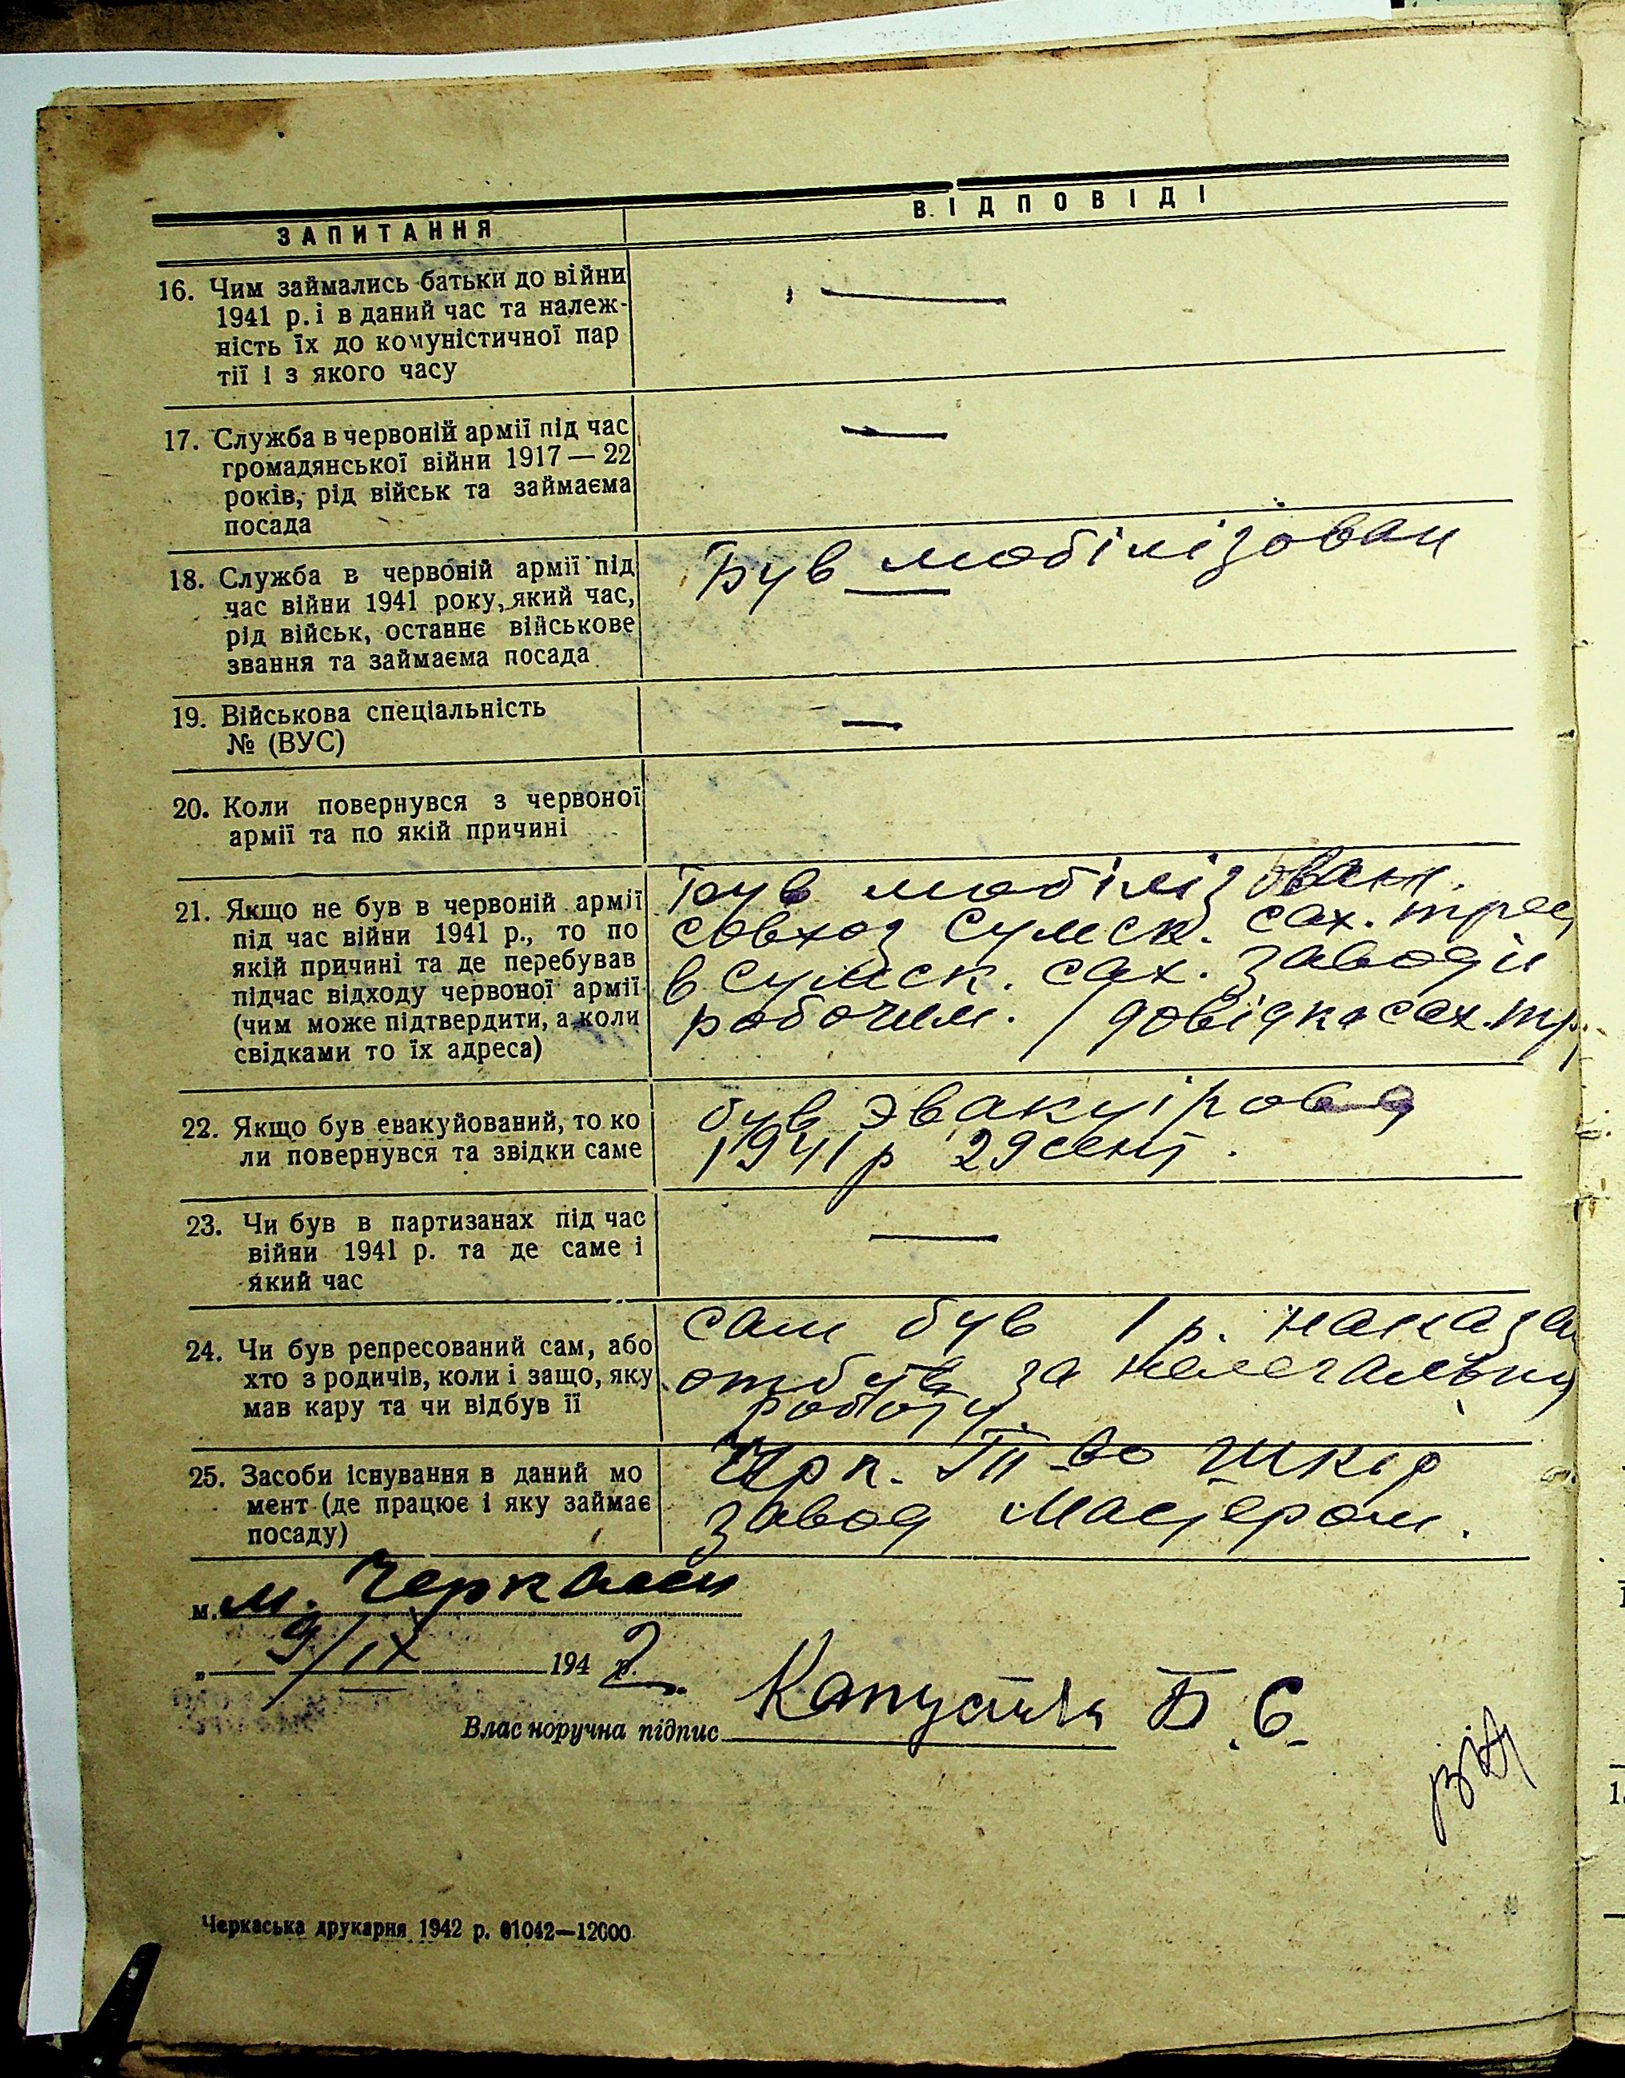 ЗАПИТАННЯ
ВІДПОВІДІ
16. Чим займались батьки до війни
1941 р. і в даний час та належ-
ність їх до комуністичної пар
тії і з якого часу
—
17. Служба в червоній армії під час
громадянської війни 1917 — 22
років, рід військ та займаєма
посада
—
18. Служба в червоній армії під
час війни 1941 року, який час,
рід військ, останнє військове
звання та займаєма посада
Був мобілізован
19. Військова спеціальність
№ (ВУС)
—
20. Коли повернувся з червоної
армії та по якій причині
21. Якщо не був в червоній армії
під час війни 1941 р., то по
якій причині та де перебував
підчас відходу червоної армії
(чим може підтвердити, а коли
свідками то їх адреса)
Був мобілізован.
совхоз Сумск. сах. трест
в Сумск. сах. заводі
робочим. / довідка сах.тр.
22. Якщо був евакуйований, то ко
ли повернувся та звідки саме
був эвакуірован
1941 р 29 сент.
23. Чи був в партизанах під час
війни 1941 р. та де саме і
який час
—
24. Чи був репресований сам, або
хто з родичів, коли і защо, яку
мав кару та чи відбув її
сам був 1 р. наказан
отбув за нелегальну
роботу.
25. Засоби існування в даний мо
мент (де працює і яку займає
посаду)
завод Мастером.
м. м. Черкаси
„ 9/IX 194 2 р.
Власноручна підпис Капустя Б. Є.
Черкаська друкарня 1942 р. 01042—12000